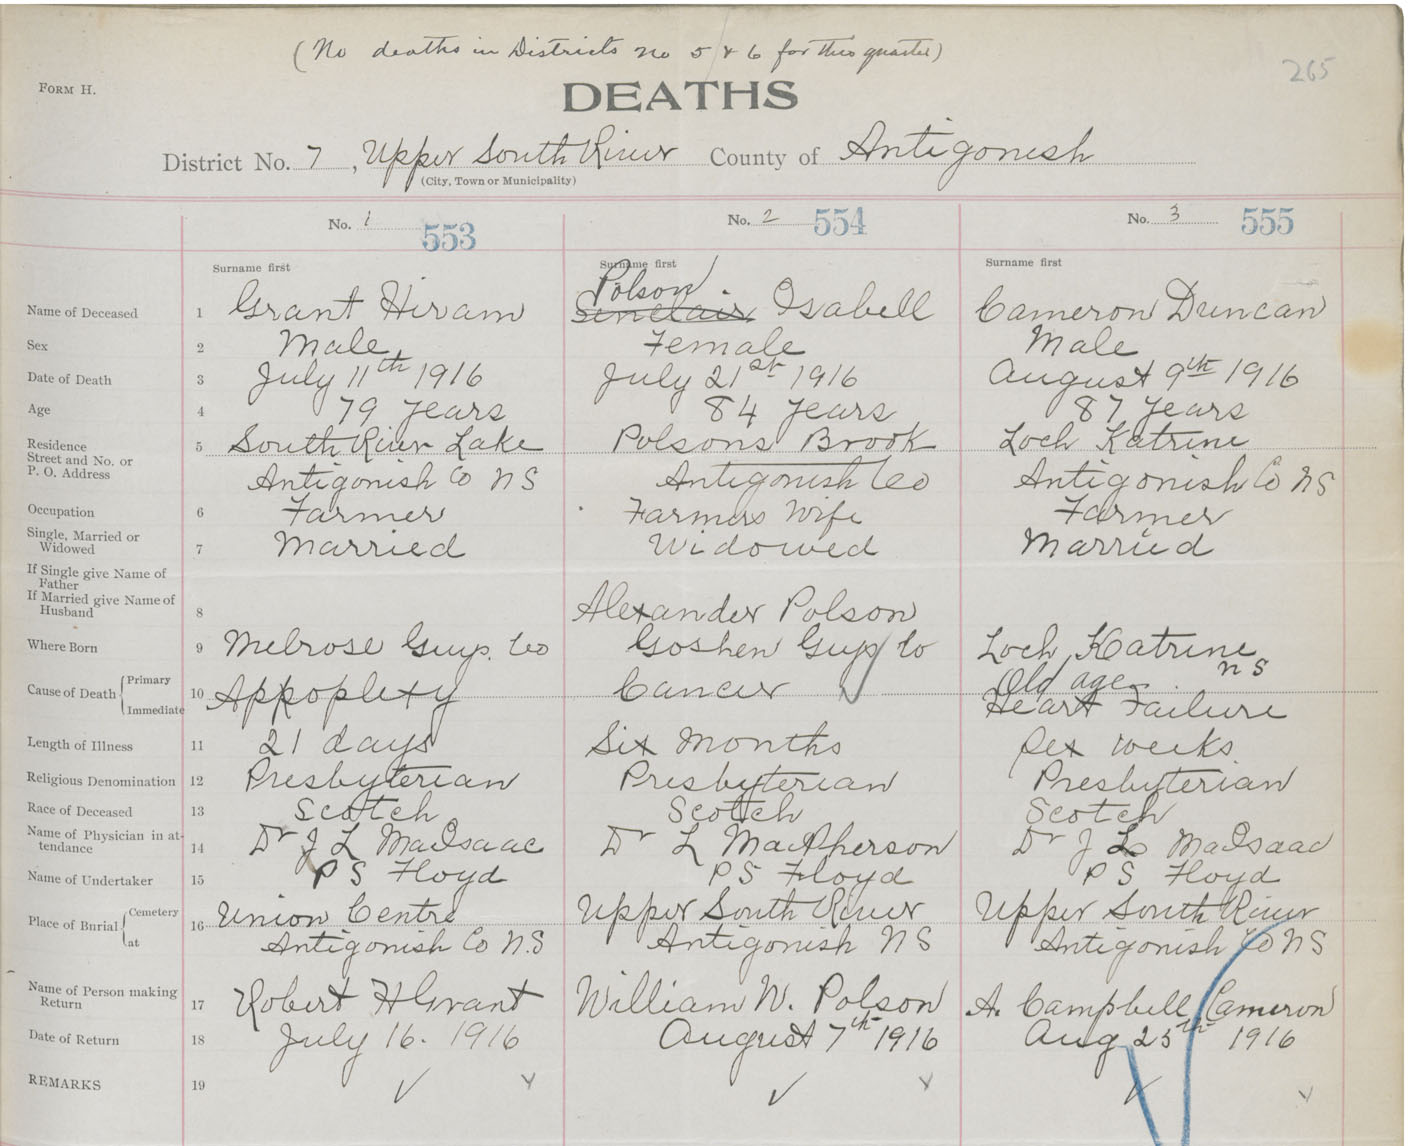 (No deaths in Districts no 5 & 6 for this quarter)
265
FORM H.
DEATHS
District No. 7, Upper South River County of Antigonish
(City, Town or Municipality)
No. 1 553 No. 2 554 No. 3 555
Surname first Surname first Surname first
Polson
Name of Deceased 1 Grant Hiram Sinclair Isabell Cameron Duncan
Sex 2 Male Female Male
Date of Death 3 July 11th 1916 July 21st 1916 August 9th 1916
Age 4 79 years 84 years 87 years
Residence Street and No. or P. O. Address 5 South River Lake Polsons Brook Loch Katrine
Antigonish Co NS Antigonish Co Antigonish Co NS
Occupation 6 Farmer Farmers Wife Farmer
Single, Married or Widowed 7 Married Widowed Married
If Single give Name of Father
If Married give Name of Husband 8 Alexander Polson
Where Born 9 Melrose Guys. Co Goshen Guys Co Loch Katrine NS
Cause of Death Primary Old age
Immediate 10 Appoplexy Cancer Heart Failure
Length of Illness 11 21 days Six Months Sex weeks
Religious Denomination 12 Presbyterian Presbyterian Presbyterian
Race of Deceased 13 Scotch Scotch Scotch
Name of Physician in attendance 14 Dr J L MacIsaac Dr L MacPherson Dr J L MacIsaac
Name of Undertaker 15 P S Floyd P S Floyd P S Floyd
Place of Burial Cemetery 16 Union Centre Upper South River Upper South River
at Antigonish Co N.S Antigonish NS Antigonish Co NS
Name of Person making Return 17 Robert H Grant William W. Polson A. Campbell Cameron
Date of Return 18 July 16. 1916 August 7th 1916 Aug 25th 1916
REMARKS 19